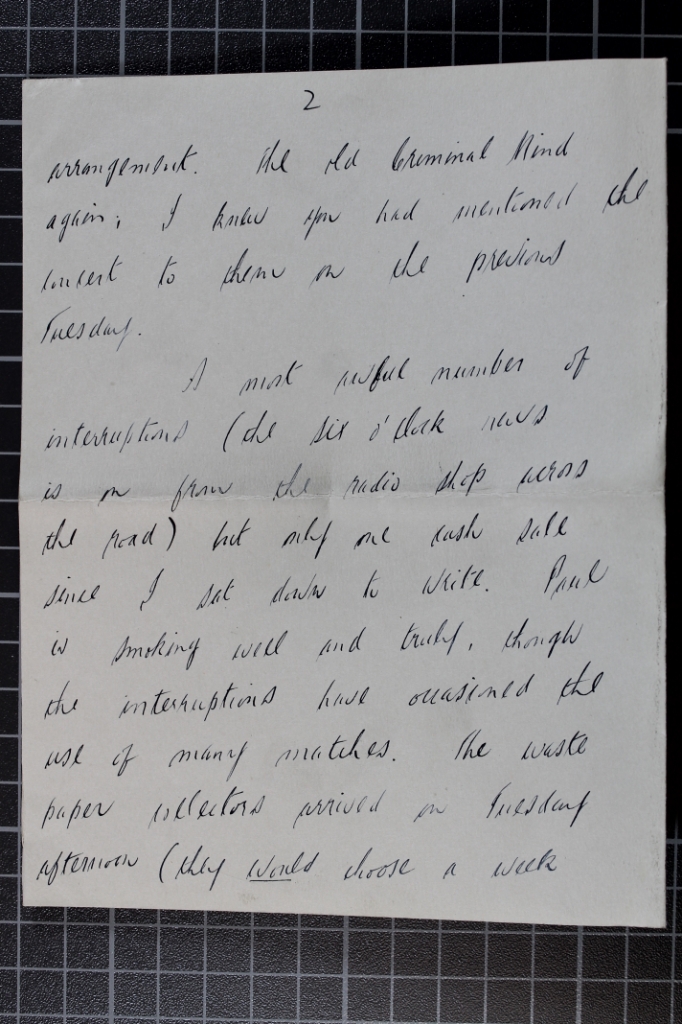 2
arrangement. The old Criminal Mind
again; I knew you had mentioned the
concert to them on the previous
Tuesday.
A most awful number of
interruptions (the six o'clock news
is on from the radio shop across
the road) but only one cash sale
since I sat down to write. Paul
is smoking well and truly, though
the interruptions have occasioned the
use of many matches. The waste
paper collectors arrived on Tuesday
afternoon (they would choose a week